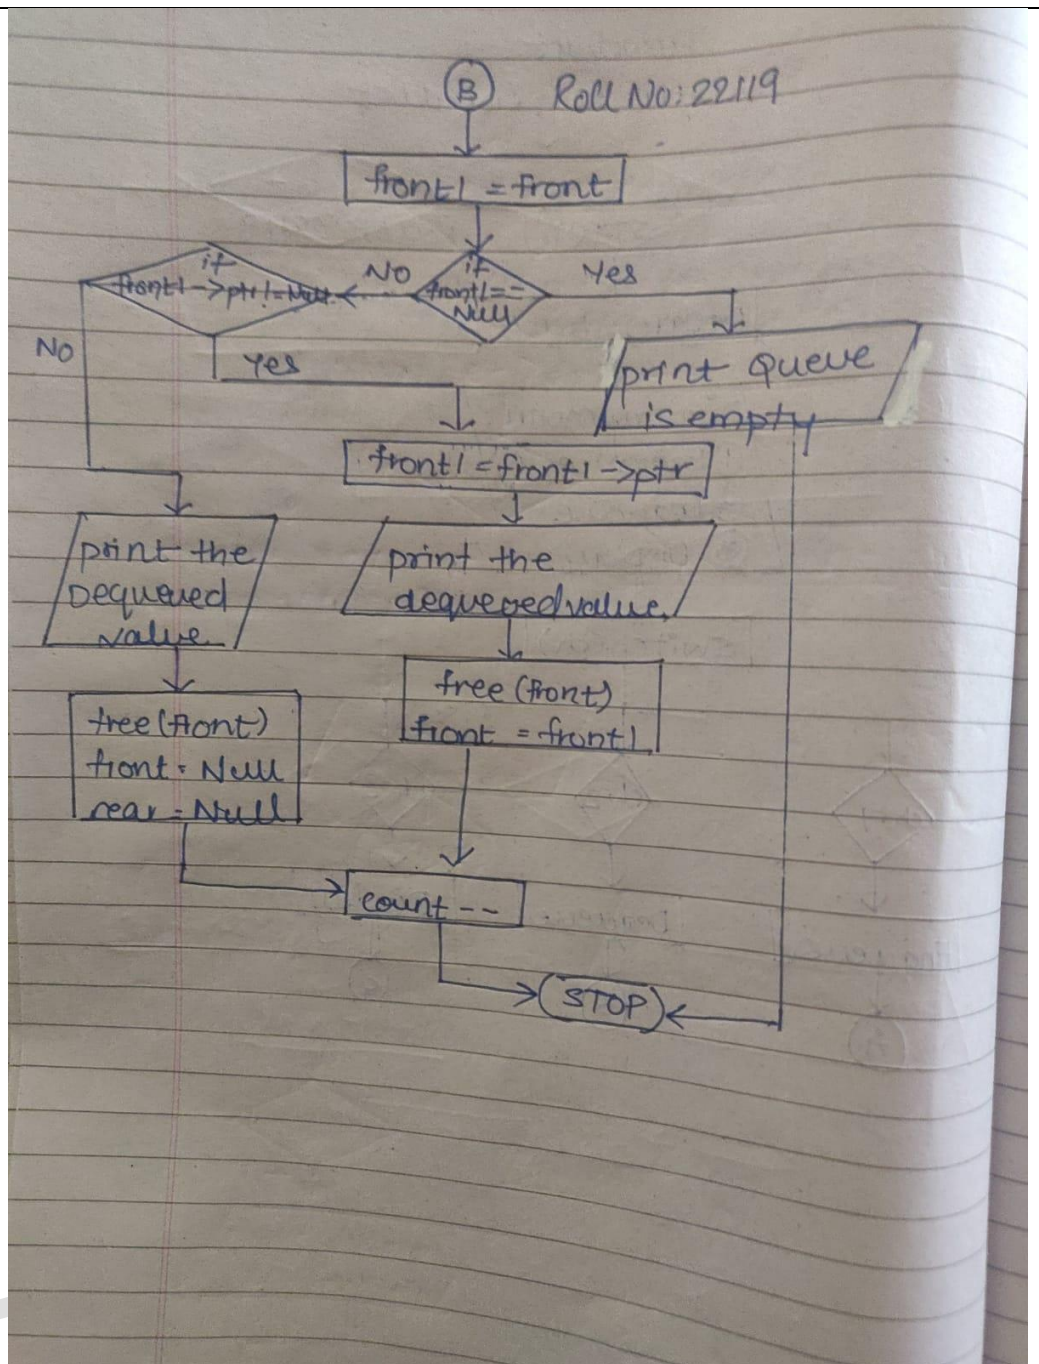 B Roll No: 22119
front1 = front
if
front1->ptr != Null
NO
if
front1==
Null
Yes
NO
Yes
print Queue
is empty
front1 = front1->ptr
print the
Dequeued
value
print the
dequeued value
free (front)
front = front1
free (front)
front = Null
rear = Null
count --
STOP